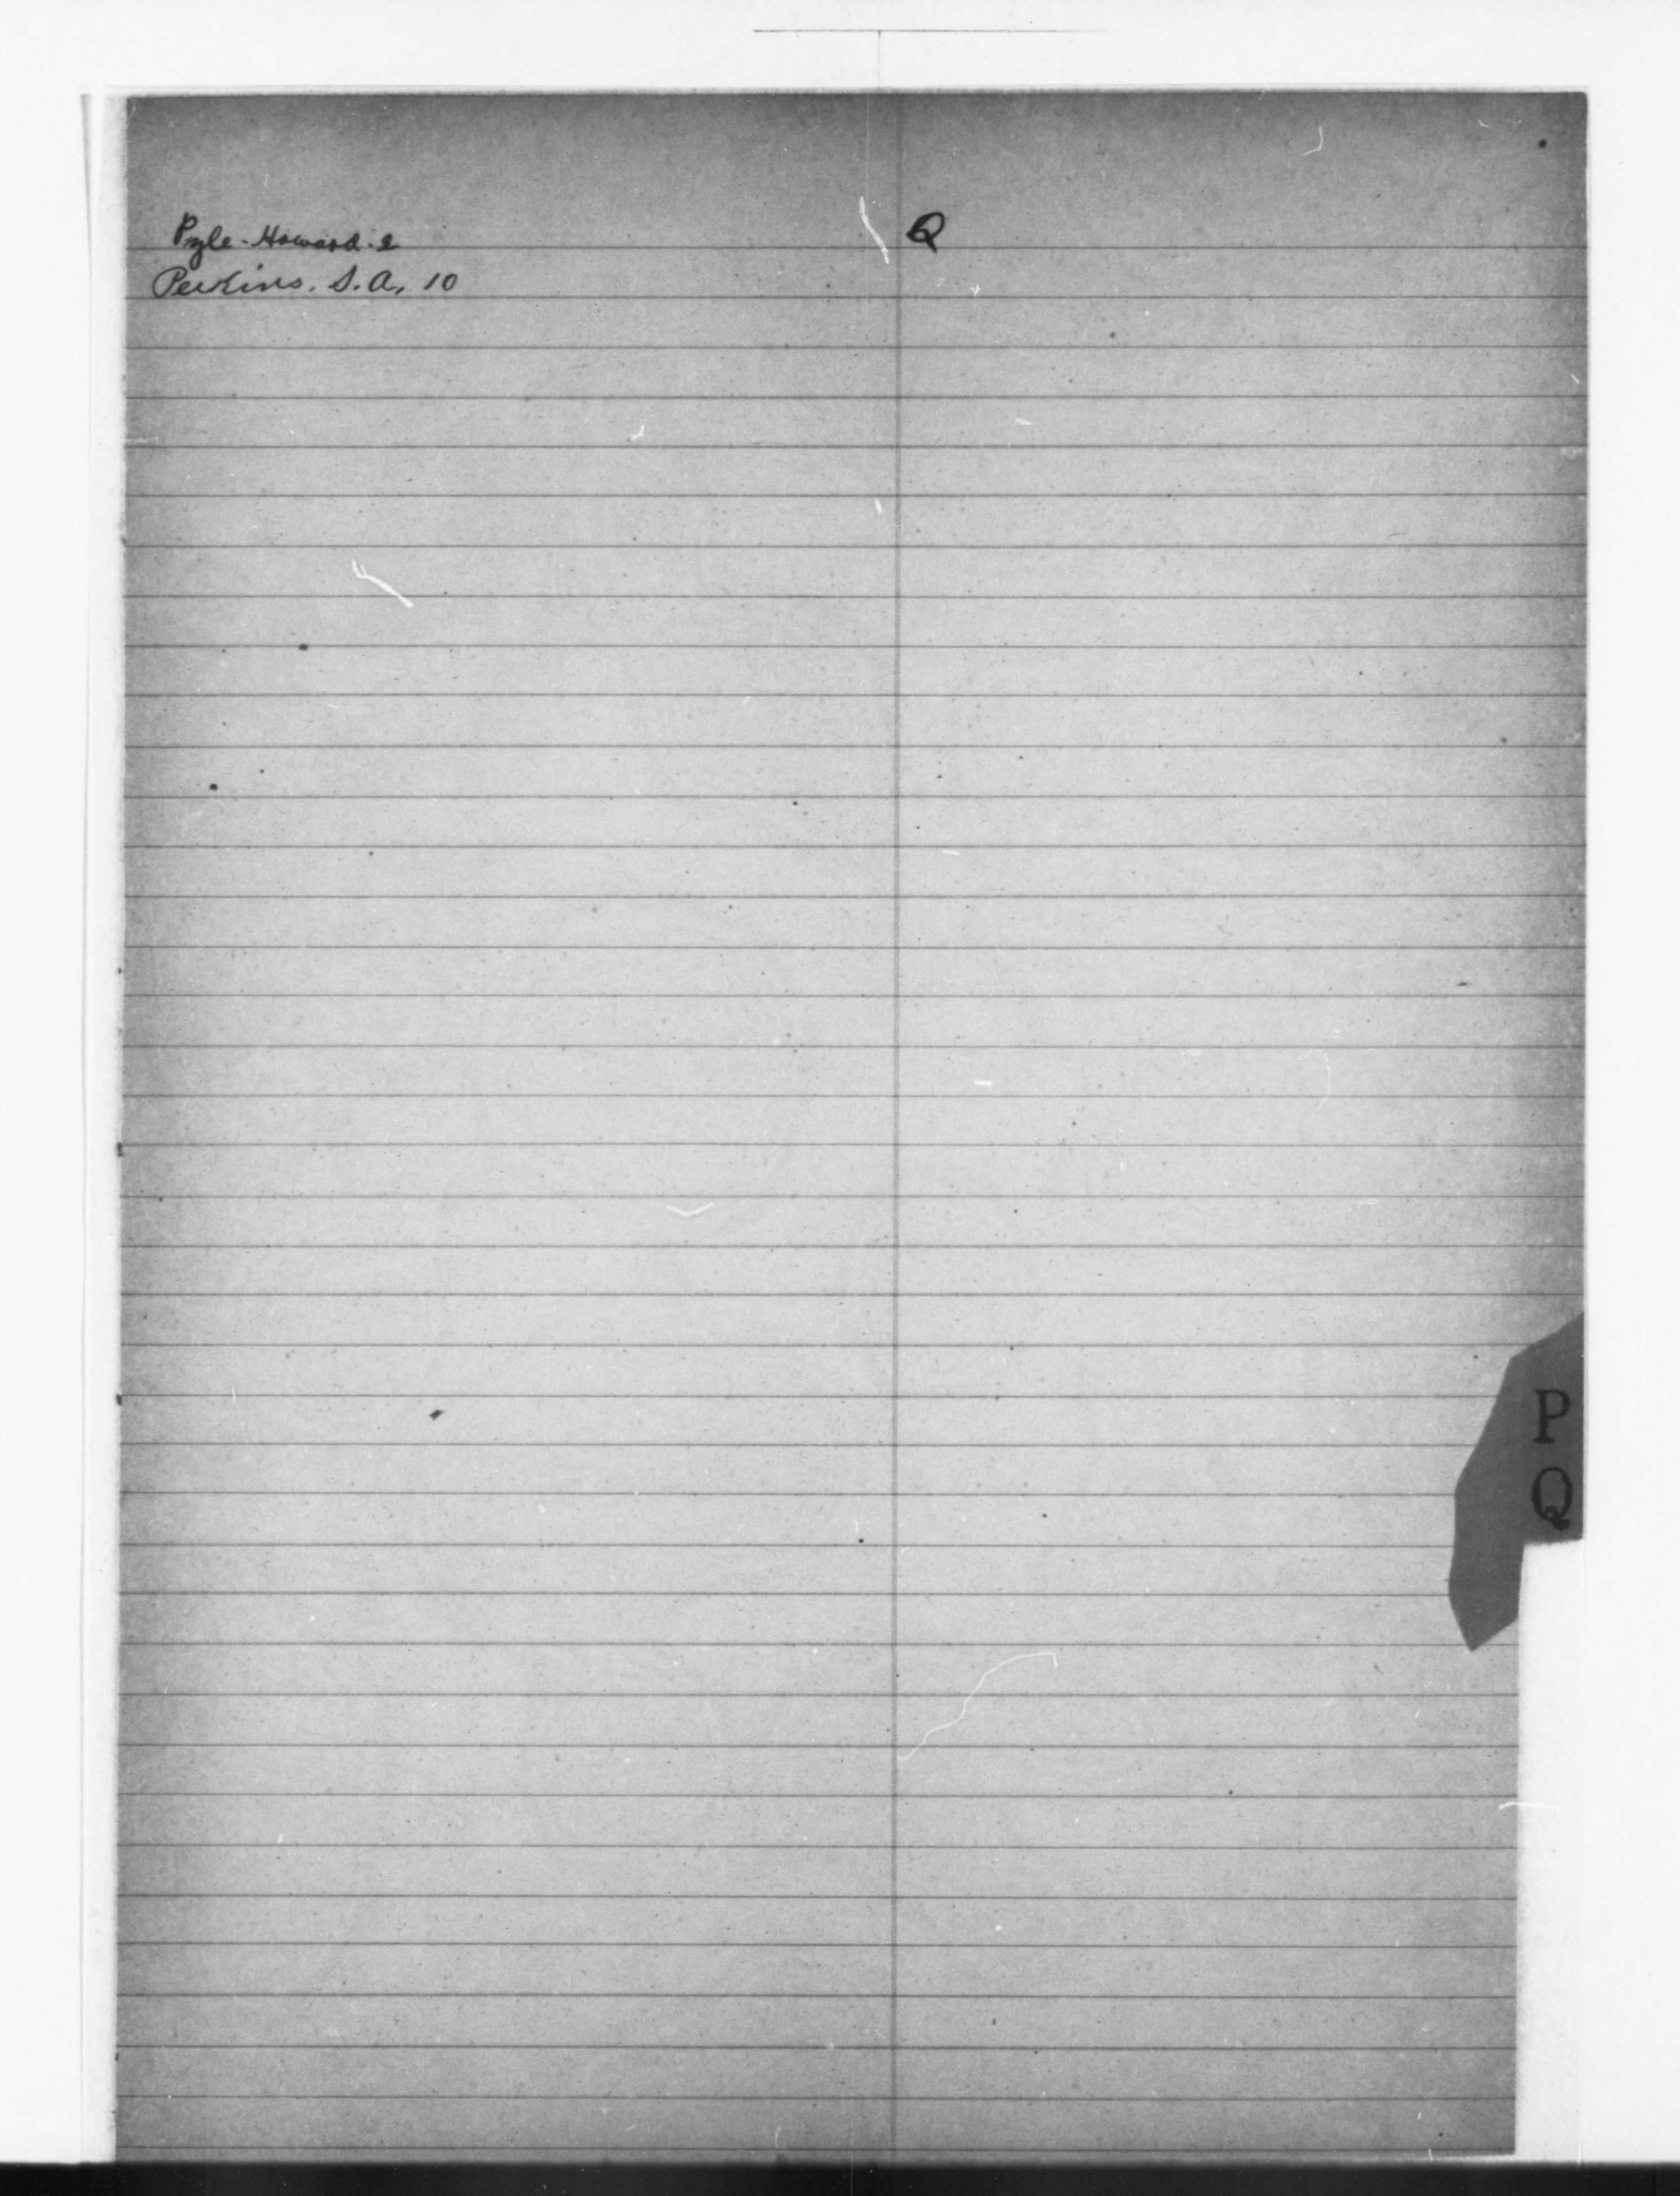 Pyle - Howard - 2
Perkins. S. A. 10
Q
P
Q